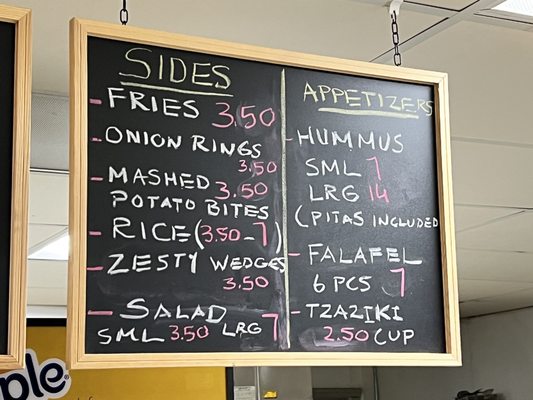 SIDES
- FRIES 3.50
- ONION RINGS
3.50
- MASHED 3.50
POTATO BITES
- RICE (3.50 - 7)
- ZESTY WEDGES
3.50
- SALAD
SML 3.50 LRG 7
APPETIZERS
- HUMMUS
SML 7
LRG 14
(PITAS INCLUDED
- FALAFEL
6 PCS 7
- TZAZIKI
2.50 CUP
ple